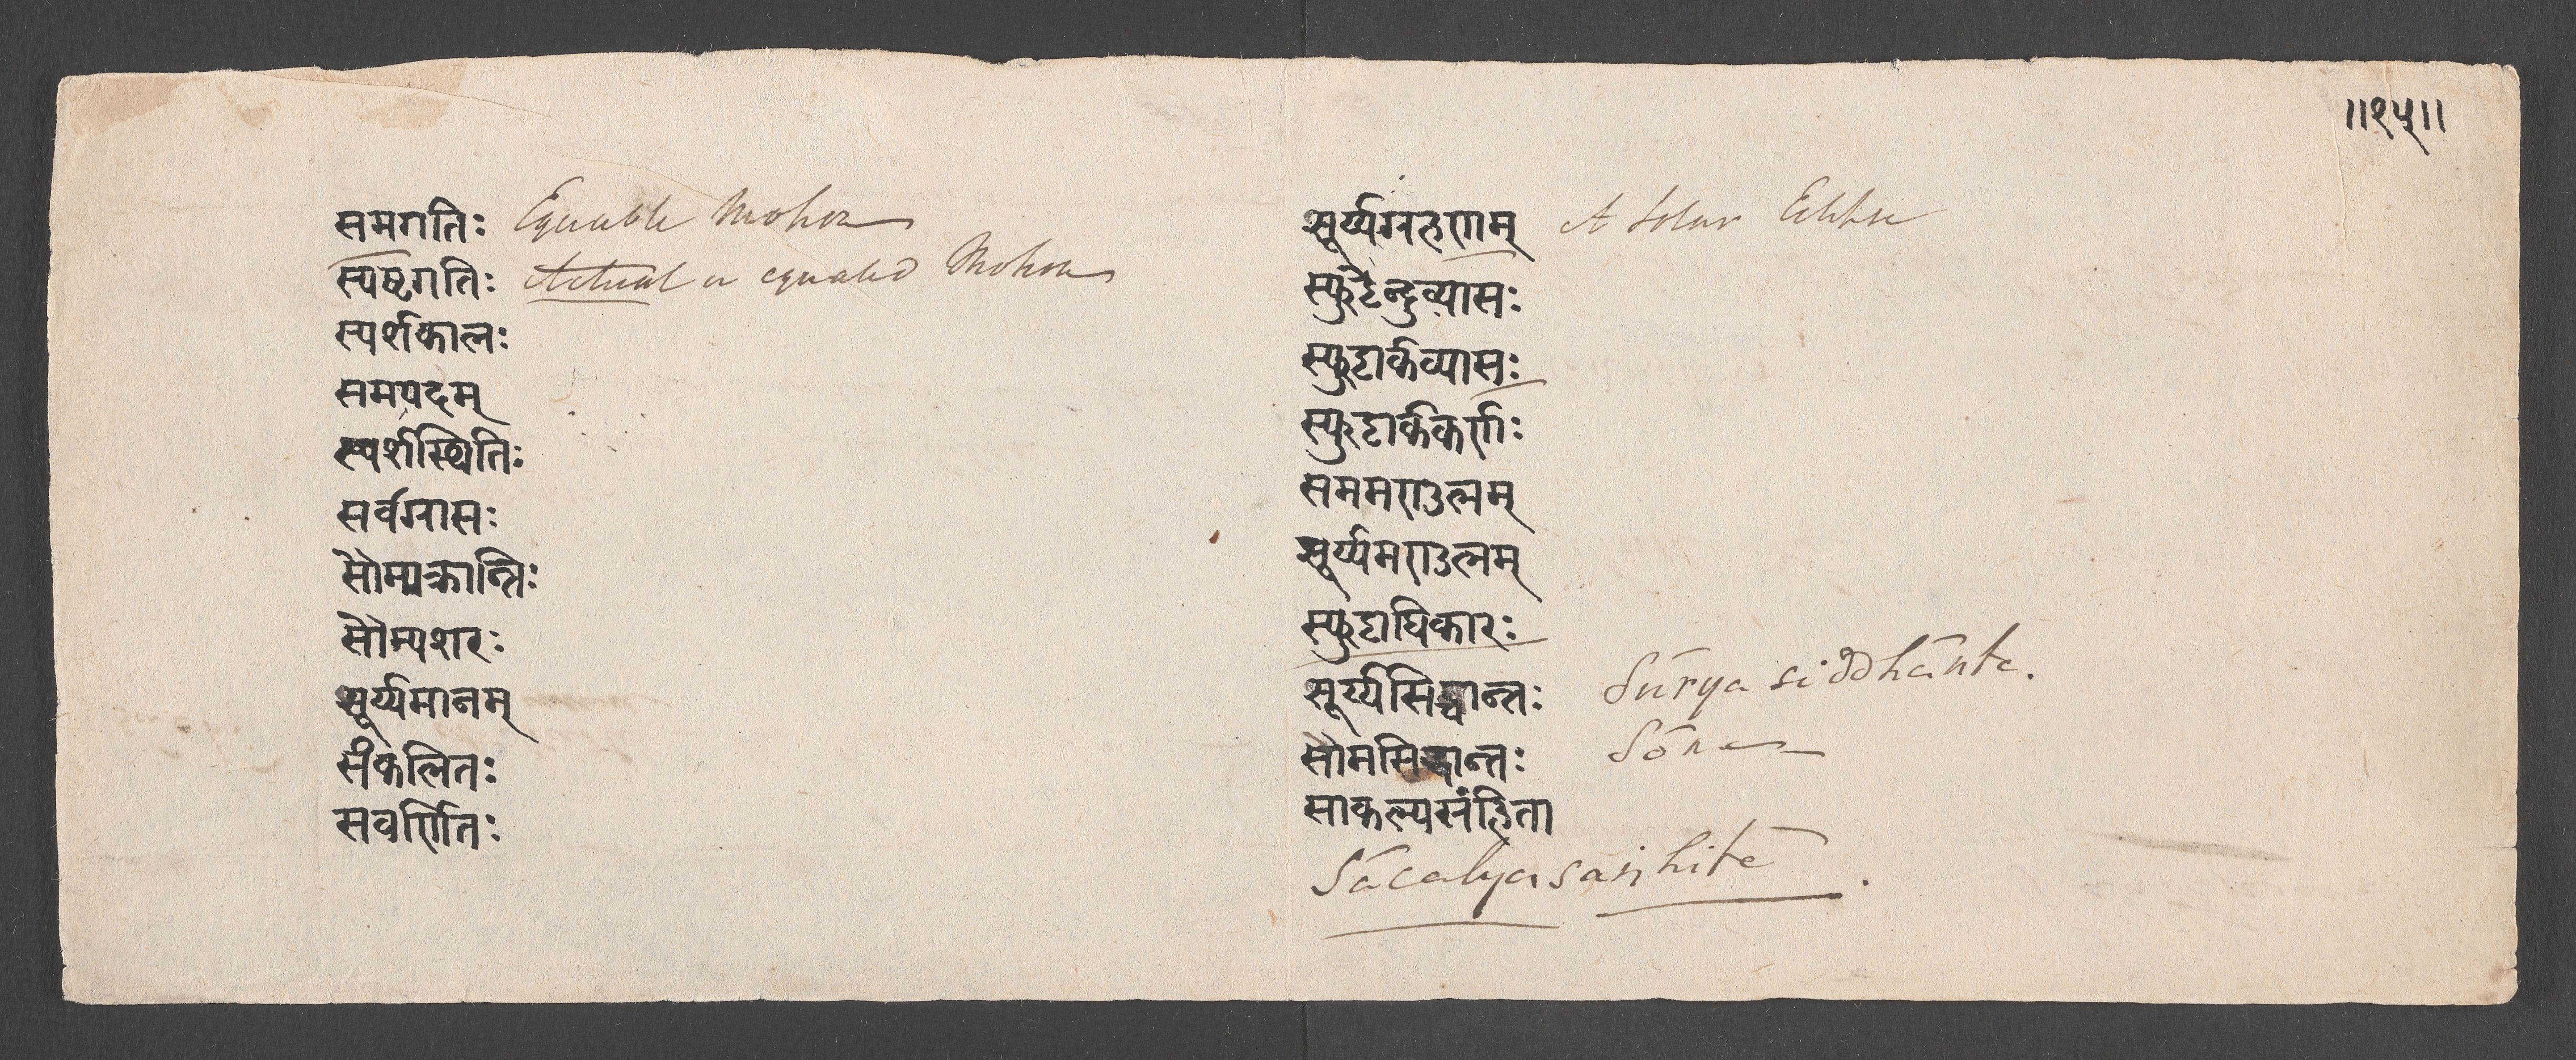 ॥१५॥
समगतिः Equable Motion
स्पष्टगतिः Actual or equated Motion
स्पर्शकालः
समपदम्
स्पर्शस्थितिः
सर्वग्रासः
सौम्यक्रान्तिः
सौम्यशरः
सूर्य्यमानम्
संकलितः
सवर्णितः
सूर्य्यग्रहणम् A Solar Eclipse
स्फुटेन्दुव्यासः
स्फुटार्कव्यासः
स्फुटार्ककर्णः
सममण्डलम्
सूर्य्यमण्डलम्
स्फुटाधिकारः
सूर्य्यसिद्धान्तः Sūrya siddhānta.
सोमसिद्धान्तः
साकल्यसंहिता
Sácalya sanhita.